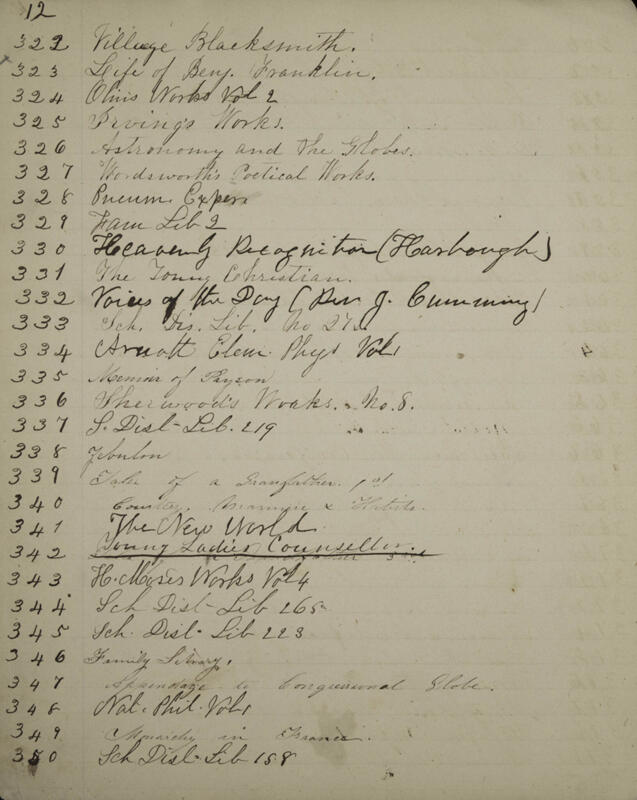 12
322 Village Blacksmith.
323 Life of Benj. Franklin.
324 Olins Works Vol 2
325 Irving's Works.
326 Astronomy and the Globes.
327 Wordsworth's Poetical Works.
328 Pneum. Exper
329 Fam Lib 2
330 Heavenly Recognition (Harbough)
331 The Young Christian.
332 Voices of the Day (Rev J. Cumming)
333 Sch. Dis. Lib. No
334 Arnott Elem. Phys Vol 1
335 Memoir of Payson
336 Sherwood's Works. No. 8.
337 S. Dist Lib. 219
338 Zebulon
339 Tales of a Grandfather. 1st
340 Country, Manners & Habits.
341 The New World
342 Young Ladies Counsellor.
343 H. Mores Works Vol 4
344 Sch Dist Lib 265
345 Sch. Dist. Lib 223
346 Family Library.
347 Appendage to Congressional Globe.
348 Nat. Phil. Vol 1
349 Monarchy in France.
350 Sch Dist Lib 158